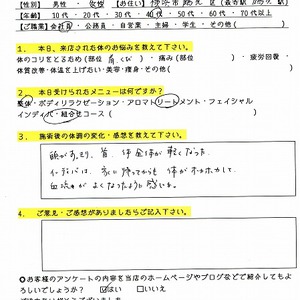 【性別】 男性 ・ 女性 【お住い】
【年齢】 10代・20代・30代・40代・50代・60代・70代以上
【ご職業】会社員・公務員・自営業・主婦・学生・その他(
1. 本日、来店された体のお悩みを教えて下さい。
体のコリをとるため(部位 肩・くび )・痛み(部位 )・疲労回復・
体質改善・体温を上げたい・美容・痩身・その他(
2. 本日受けられたメニューは何ですか?
整体・ボディリラクゼーション・アロマトリートメント・フェイシャル
インディバ・組合せコース(
3. 施術後の体調の変化・感想を教えて下さい。
頭がすっきり、首、体全体が軽くなった。
インディバは、家に帰ってからも体がポカポカして
血流がよくなったように感じた。
4. ご意見・ご感想がありましたらご記入下さい。
○お客様のアンケートの内容を当店のホームページやブログなどでご紹介してもよ
ろしいでしょうか? ☑はい □いいえ